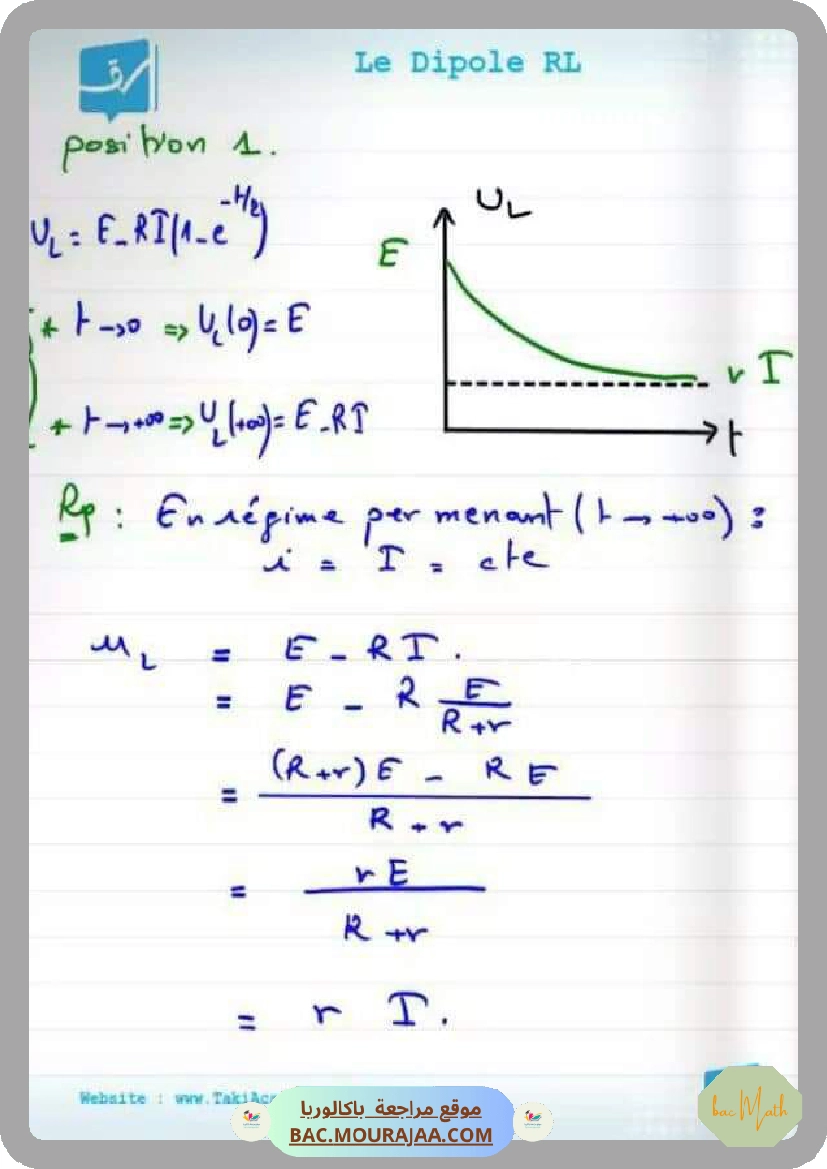 Le Dipole RL
position 1.
U_L = E - RI(1-e^{-t/τ})
U_L
E
* t→0 => U_L(0) = E
r I
* t→+∞ => U_L(+∞) = E - RI
t
Rp : En régime permenant (t → +∞) :
i = I = cte
u_L = E - R I .
= E - R E/(R+r)
= ((R+r) E - R E)/(R+r)
= rE/(R+r)
= r I .
Website : www.TakiAc
موقع مراجعة باكالوريا
BAC.MOURAJAA.COM
bac Math